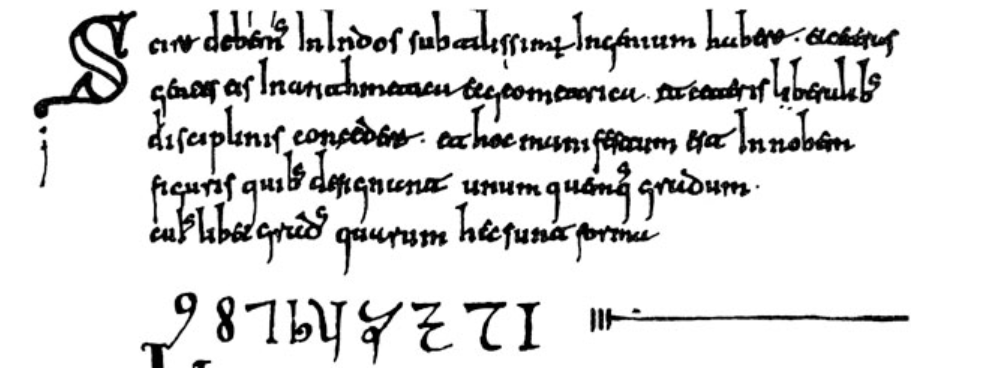 Scire debem' In Indos subtilissimum Ingenium habere. et ceteras
gentes eis In arithmetica et geometrica. et ceteris liberalib'
disciplinis concedere. et hoc manifestum est In nobem
figuris quib' designant unum quemq' gradum.
cuius libet grad' quarum hec sunt forma
9 8 7 6 5 4 3 2 1